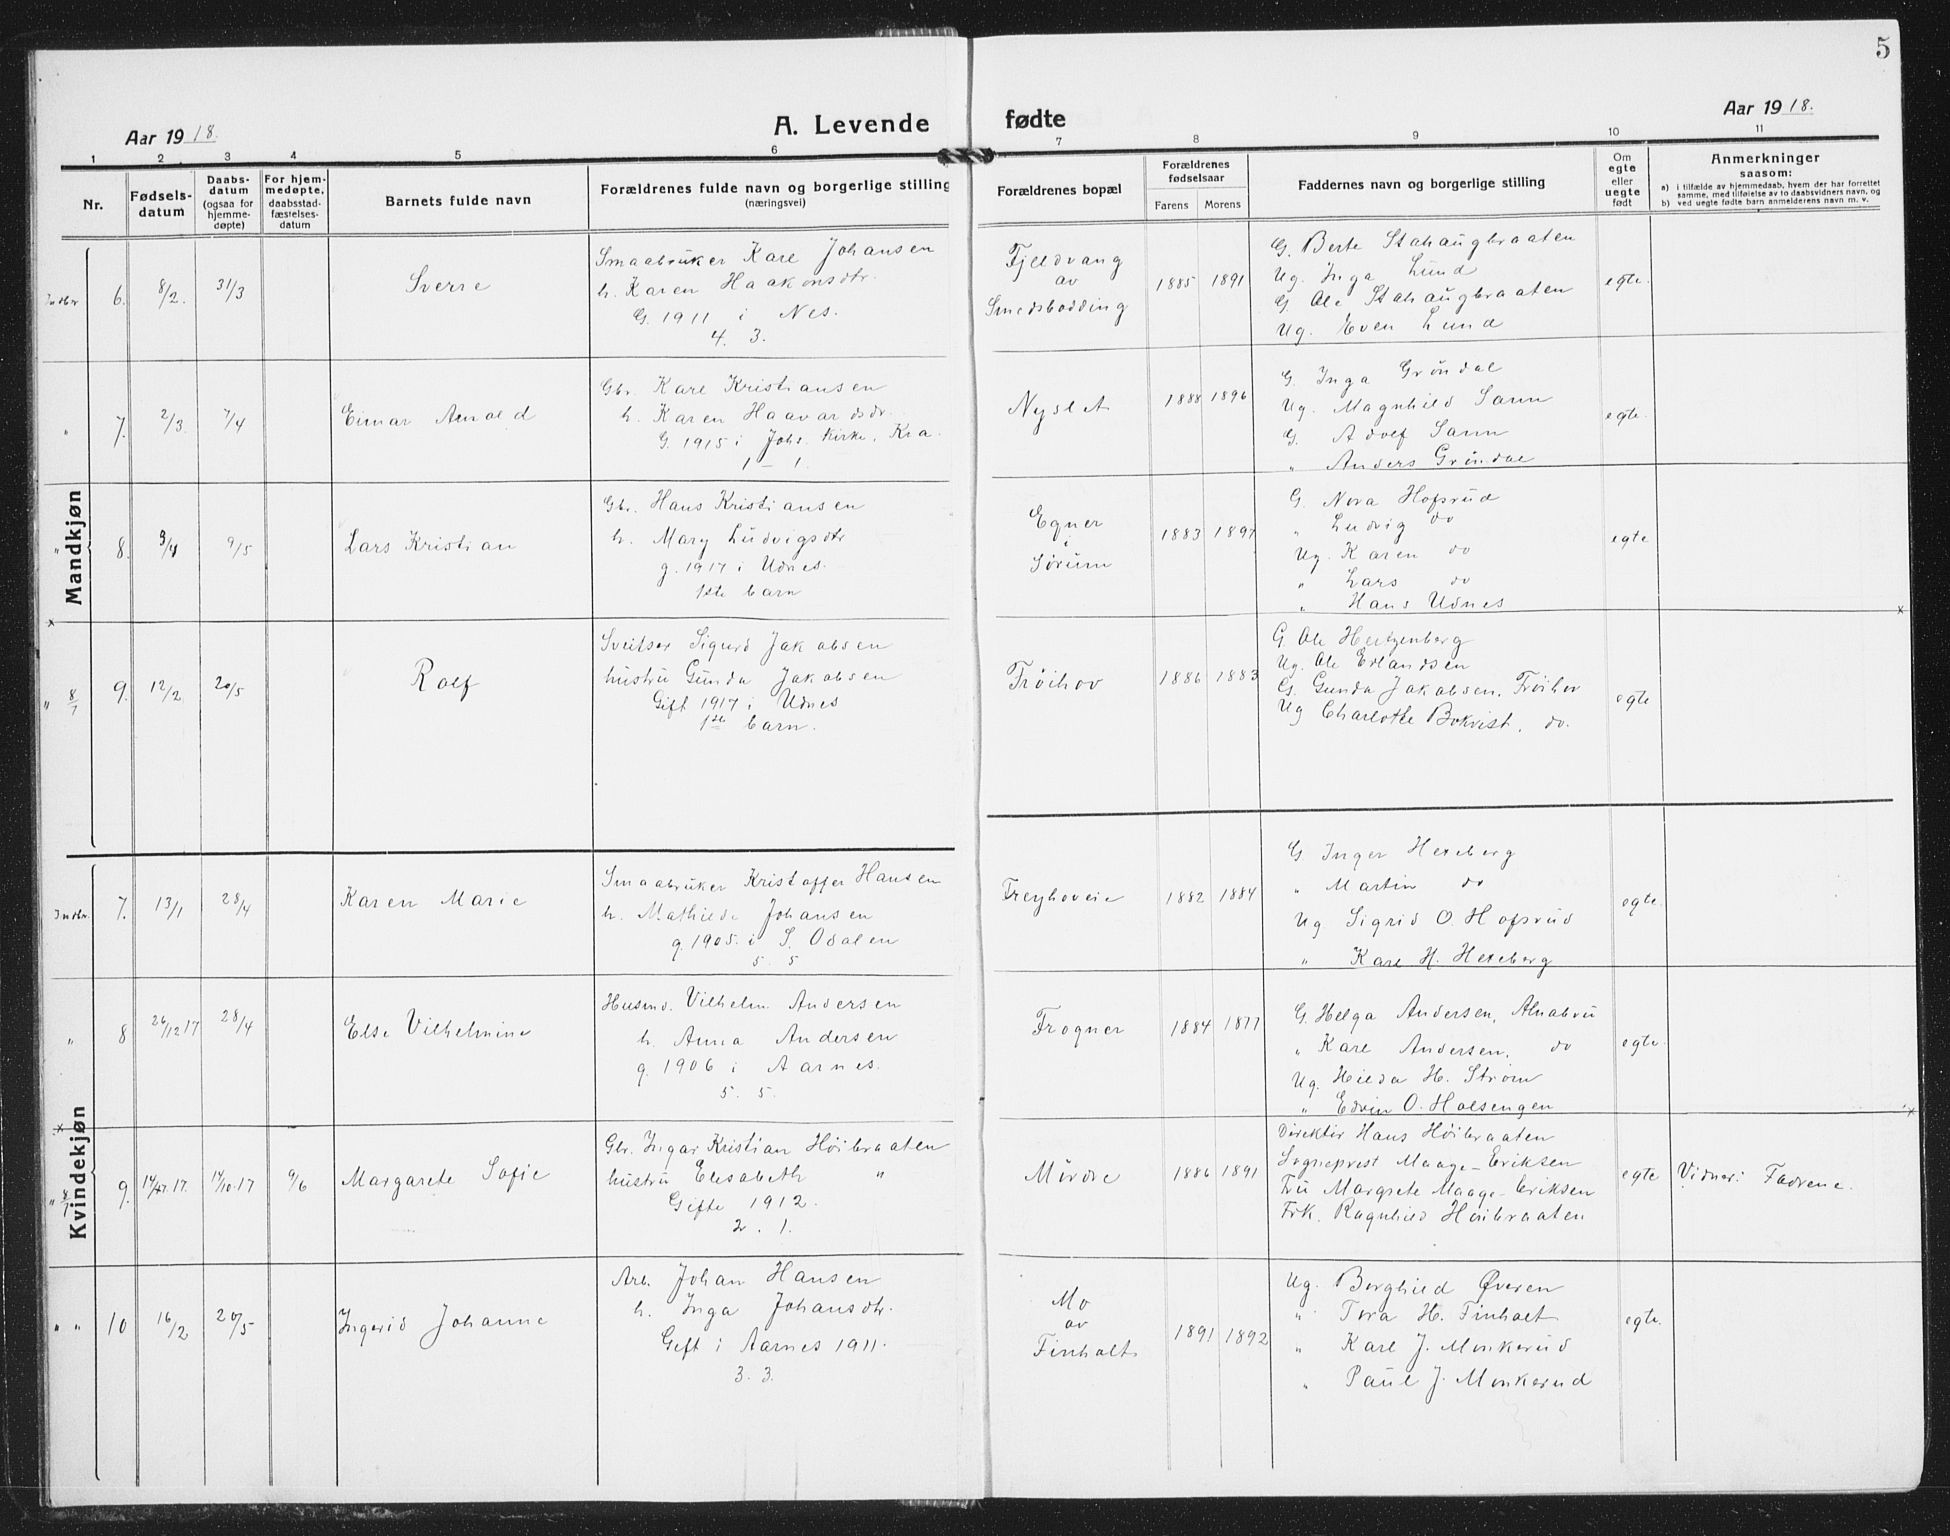 5
Aar 1918.
A. Levende fødte
Aar 1918.
1 2 3 4 5 6 7 8 9 10 11
Nr.
Fødsels-
datum
Daabs-
datum
(ogsaa for
hjemme-
døpte)
For hjem-
medøpte,
daabsstad-
fæstelses-
datum
Barnets fulde navn
Forældrenes fulde navn og borgerlige stilling
(næringsvei)
Forældrenes bopæl
Forældrenes
fødselsaar
Farens Morens
Faddernes navn og borgerlige stilling
Om
egte
eller
uegte
født
Anmerkninger
saasom:
a) i tilfælde av hjemmedaab, hvem der har forrettet
samme, med tilføielse av to daabsvidners navn, og
b) ved uegte fødte barn anmelderens navn m. v.
Mandkjøn
Indbr 6. 8/2. 31/3
Sverre
Smaabruker Karl Johansen
h. Karen Haakonsdtr.
G. 1911 i Nes.
4. 3.
Fjeldvang
av
Smedsbødding
1885 1891
G. Berte Stahaugbraaten
Ug. Inga Lund
G. Ole Stahaugbraaten
Ug. Even Lund
egte.
" 7. 2/3 7/4
Einar Arnold
Gbr. Karl Kristiansen
h. Karen Haavardsdr.
G. 1915 i Johs. Kirke, Kra.
1 – 1.
Nyslet
1888 1896
G. Inga Grøndal
Ug. Magnhild Sann
G. Adolf Sann
" Anders Grøndal
egte.
" 8. 3/4 9/5
Lars Kristian
Gbr. Hans Kristiansen
h. Mary Ludvigsdtr
g. 1917 i Udnes.
1ste barn
Egner
i
Sørum
1883 1897
G. Nora Hofsrud
" Ludvig do
Ug. Karen do
" Lars do
" Hans Udnes
egte
x x
" 8/7 9. 12/2 20/5
Rolf
Sveitser Sigurd Jakobsen
hustru Gunda Jakobsen
Gift 1917 i Udnes
1ste barn.
Frøihov
1886 1883
G Ole Hertzenberg
Ug. Ole Erlandsen
G. Gunda Jakobsen, Frøihov
Ug Charlotte Bokvist, do.
egte
Kvindekjøn
Indbr. 7. 13/1 28/4
Karen Marie
Smaabruker Kristoffer Hansen
h. Mathilde Johansen
g. 1905. i S. Odalen
5. 5
Freyhoveie
1882 1884
G. Inger Hexeberg
" Martin do
Ug Sigrid O. Hofsrud
" Karl H. Hexeberg
egte
" 8 26/12 17 28/4
Else Vilhelmine
Husmd. Vilhelm Andersen
h. Anna Andersen
g. 1906 i Aarnes.
5. 5.
Frogner
1884 1877
G. Helga Andersen, Alnabru
" Karl Andersen, do
Ug. Hilda H. Strøm
" Edvin O. Holsengen
egte.
x x
" 8/7 9. 14/10.17 9/6
Margarete Sofie
Gbr. Ingar Kristian Høibraaten
hustru Elisabeth "
Gifte 1912.
2. 1.
Mørdre
1886 1891
Direktør Hans Høibraaten
Sogneprest Maage-Eriksen
Fru Margrete Maage-Eriksen
Frk. Ragnhild Høibraaten
egte
Vidner: Fadrene.
" " 10 16/2 20/5
Ingerid Johanne
Arb. Johan Hansen
h. Inga Johansdtr.
Gift i Aarnes 1911.
3. 3.
Mo
av
Finholt
1891 1892
Ug. Borghild Øveren
" Tora H. Finholt
" Karl J. Monkerud
" Paul J. Monkerud
egte.